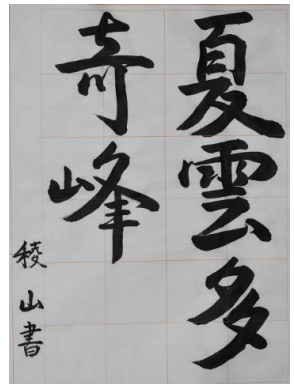 夏雲多
奇峰
稜山書